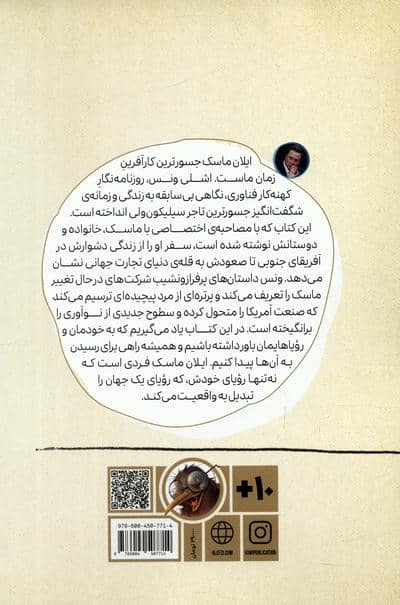 ایلان ماسک جسورترین کارآفرینِ
زمان ماست. اشلی ونس، روزنامه‌نگارِ
کهنه‌کار فناوری، نگاهی بی‌سابقه به زندگی و زمانه‌ی
شگفت‌انگیز جسورترین تاجر سیلیکون‌ولی انداخته است.
این کتاب که با مصاحبه‌ی اختصاصی با ماسک، خانواده و
دوستانش نوشته شده است، سفر او را از زندگی دشوارش در
آفریقای جنوبی تا صعودش به قله‌ی دنیای تجارت جهانی نشان
می‌دهد. ونس داستان‌های پرفرازونشیب شرکت‌های درحال تغییر
ماسک را تعریف می‌کند و پرتره‌ای از مرد پیچیده‌ای ترسیم می‌کند
که صنعت آمریکا را متحول کرده و سطوح جدیدی از نوآوری را
برانگیخته است. در این کتاب یاد می‌گیریم که به خودمان و
رؤیاهایمان باور داشته باشیم و همیشه راهی برای رسیدن
به آن‌ها پیدا کنیم. ایلان ماسک فردی است که
نه‌تنها رؤیای خودش، که رؤیای یک جهان را
تبدیل به واقعیت می‌کند.
+۱۰
978-600-450-771-4
تومان